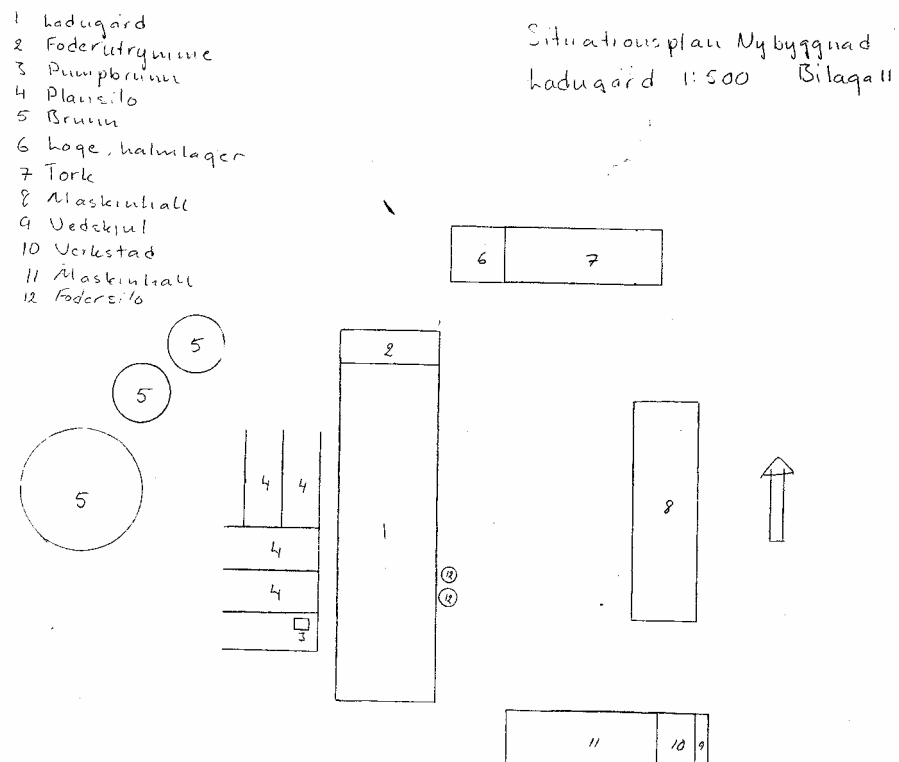 1 Ladugård
2 Foderutrymme
3 Pumpbrunn
4 Plansilo
5 Brunn
6 Loge, halmlager
7 Tork
8 Maskinhall
9 Vedskjul
10 Verkstad
11 Maskinhall
12 Fodersilo
Situationsplan Nybyggnad
Ladugård 1:500 Bilaga 11
6 7
5
2
5
5
4 4
1
8
4
12
4
12
3
11 10 9